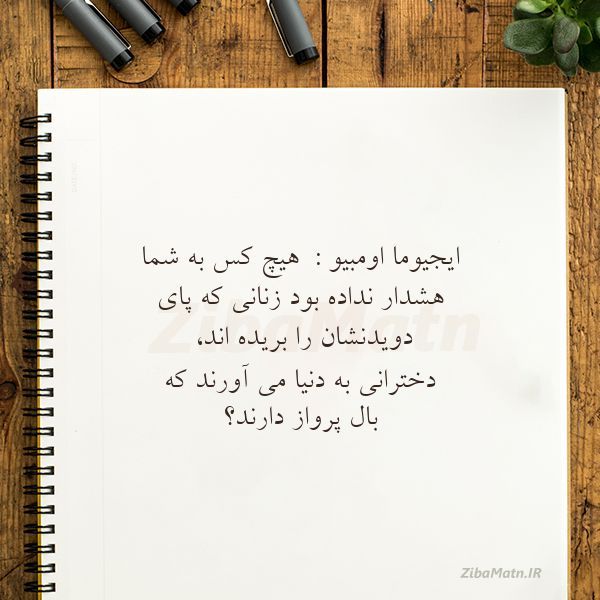 ایجیوما اومبیو : هیچ کس به شما
هشدار نداده بود زنانی که پای
دویدنشان را بریده اند،
دخترانی به دنیا می آورند که
بال پرواز دارند؟
ZibaMatn
ZibaMatn.IR